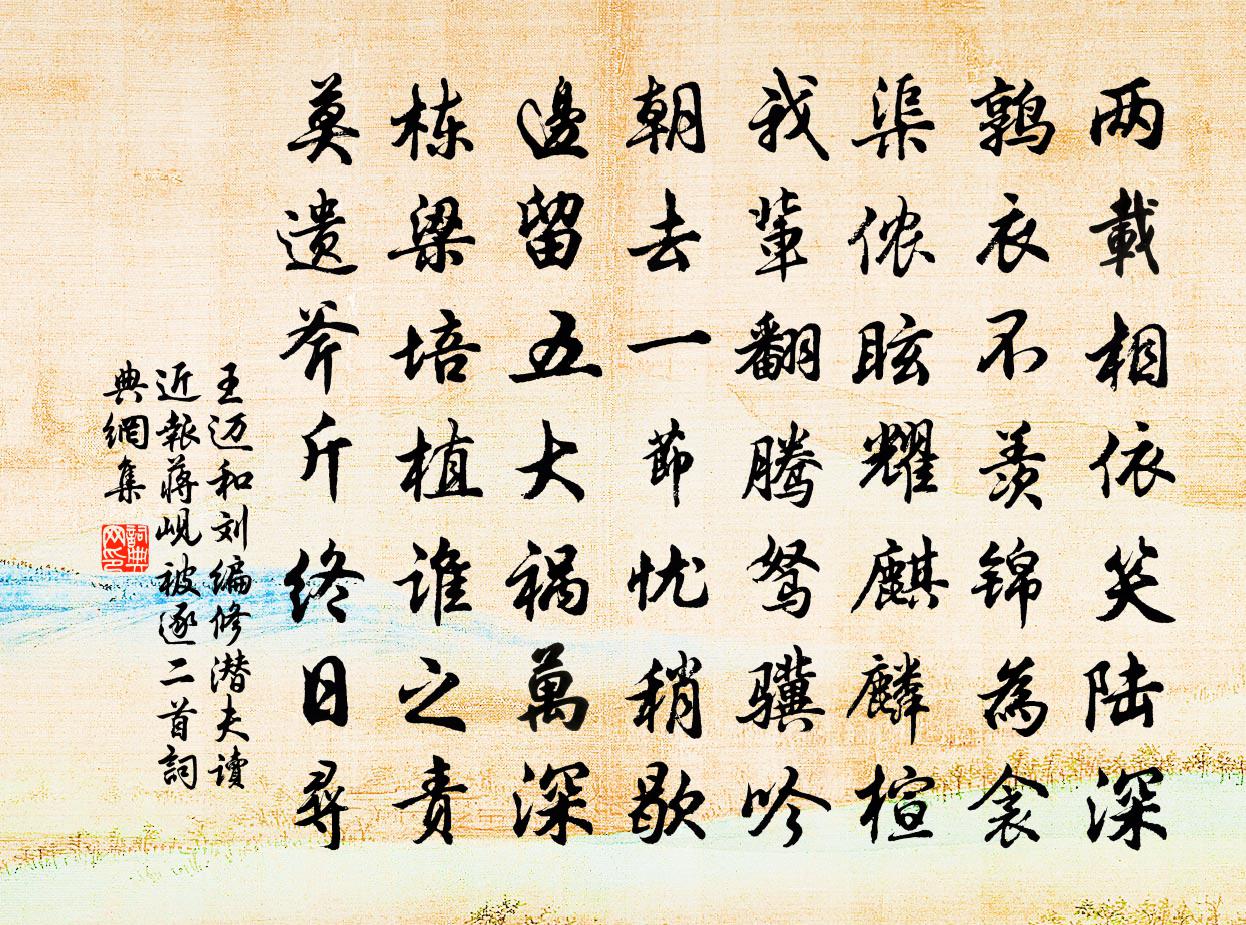 两載相依笑陆深
鹑衣不羡錦為衾
渠侬眩耀麒麟楦
我軰翻腾驽骥吟
朝去一莭忧稍歇
邊留五大祸萬深
栋梁培植谁之责
莫遗斧斤终日尋
王迈和刘编修潜夫读
近報蒋岘被逐二首詞
典網集
詞典网印